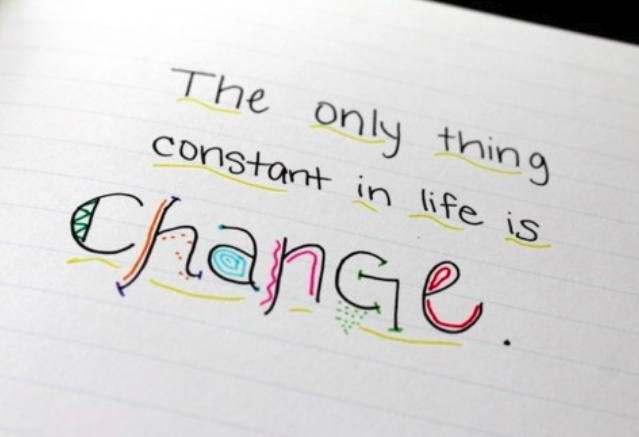 The only thing
constant in life is
ChanGe.